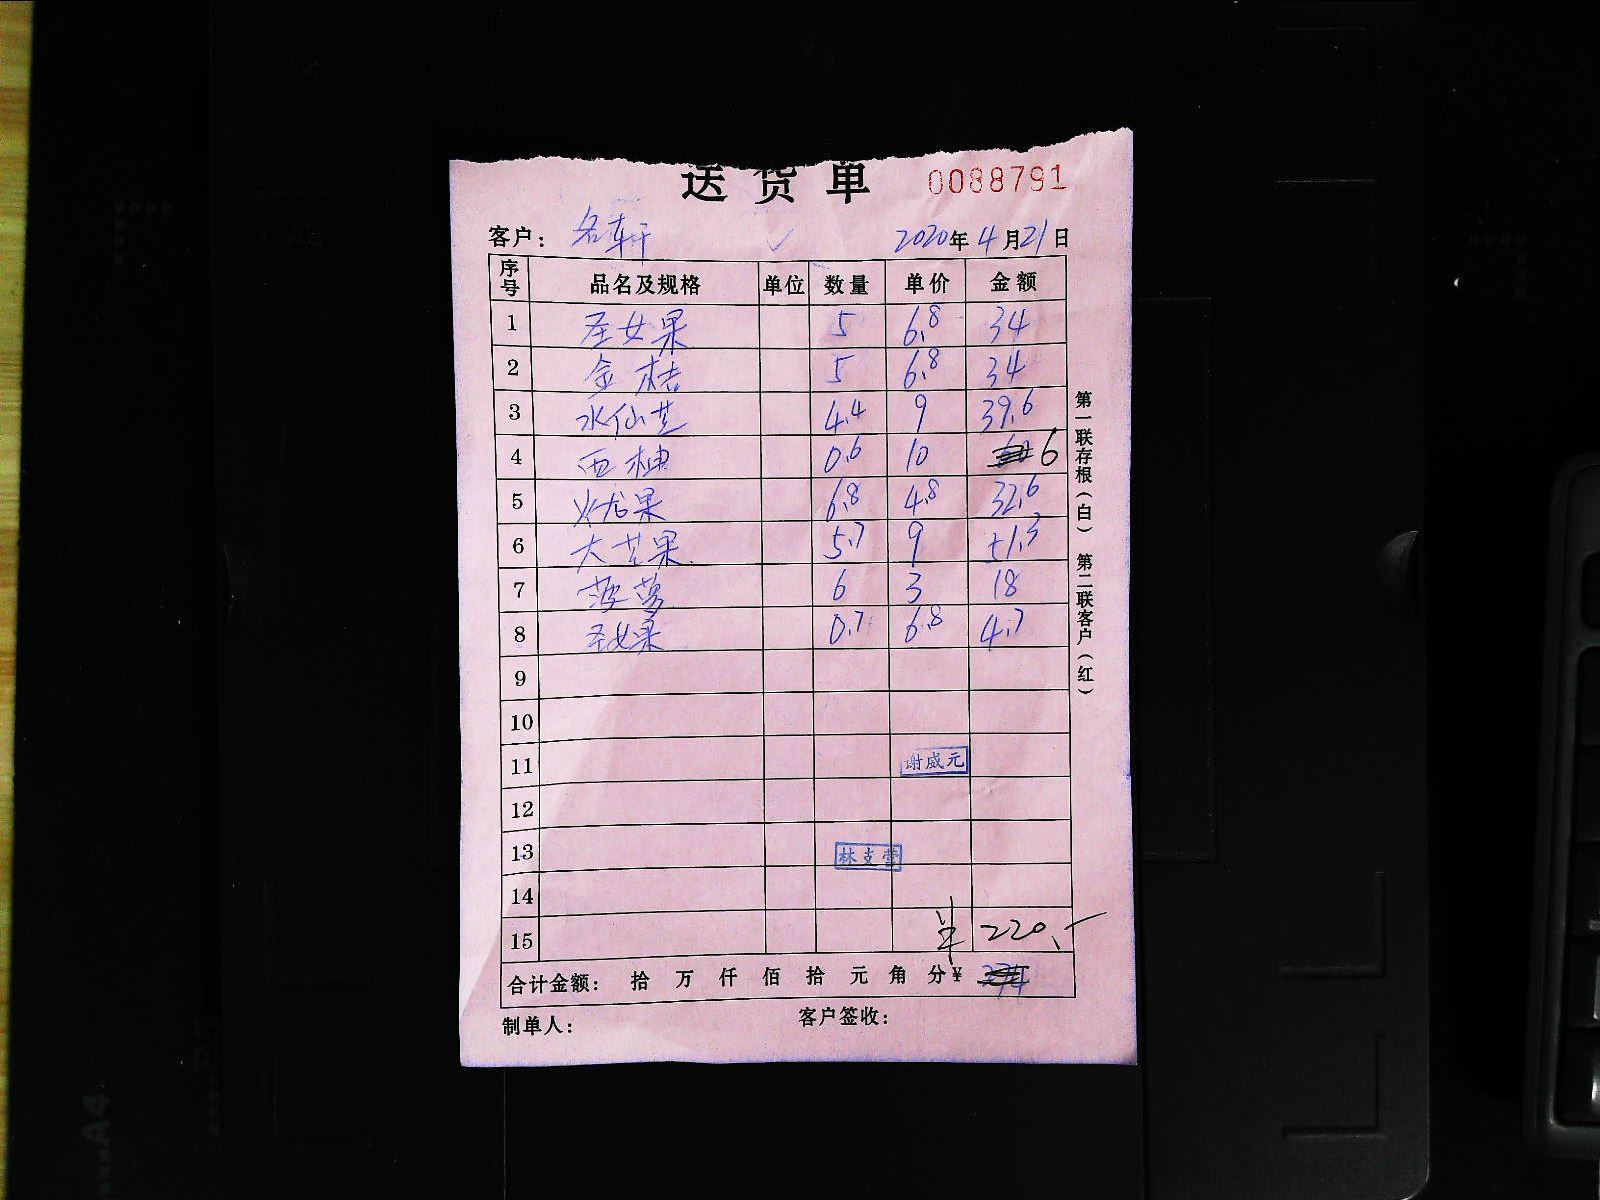 送货单 0088791
客户: 名轩 2020年4月21日
序号 品名及规格 单位 数量 单价 金额
1 圣女果 5 6.8 34
2 金桔 5 6.8 34
3 水仙芒 4.4 9 39.6
4 西柚 0.6 10 6
5 火龙果 6.8 4.8 32.6
6 大芒果 5.7 9 51.3
7 菠萝 6 3 18
8 圣女果 0.7 6.8 4.7
9
10
11 谢威元
12
13 林支营
14
15 ¥ 220.-
合计金额: 拾 万 仟 佰 拾 元 角 分 ¥
制单人: 客户签收:
第一联存根(白) 第二联客户(红)
A4